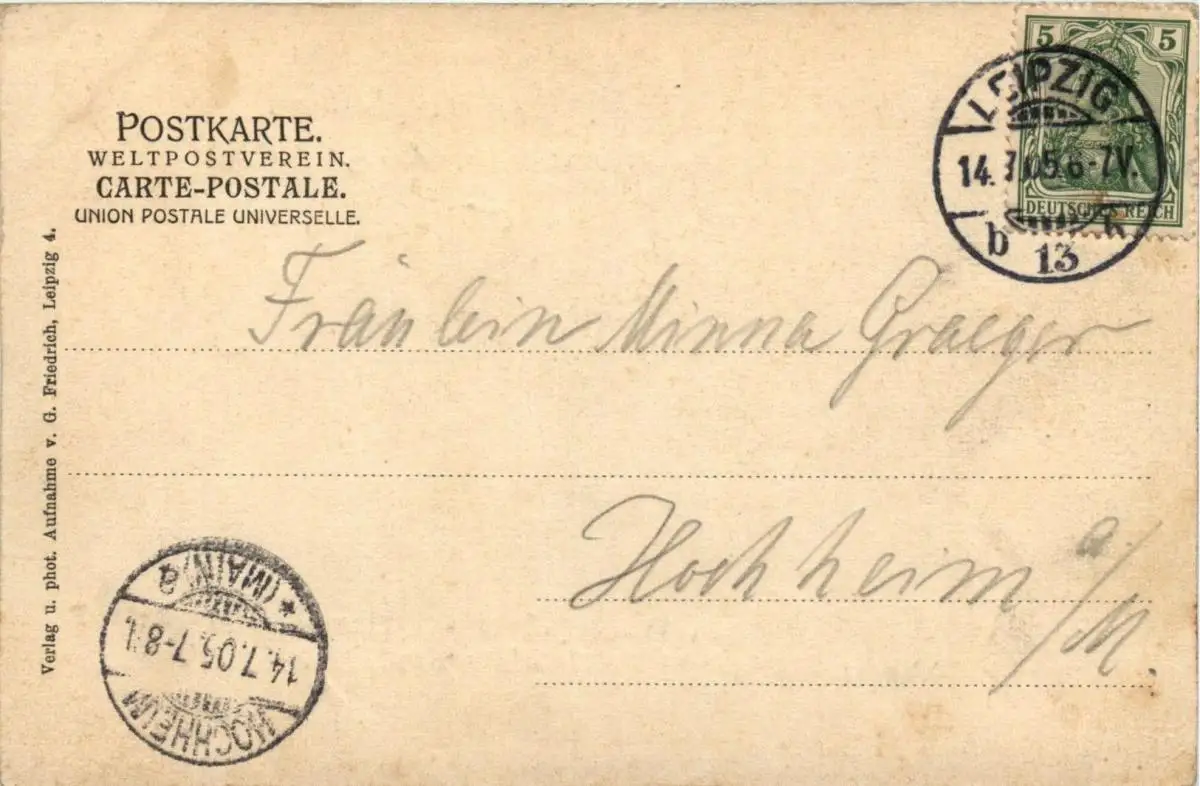 POSTKARTE.
WELTPOSTVEREIN.
CARTE-POSTALE.
UNION POSTALE UNIVERSELLE.
5 5
DEUTSCHES REICH
LEIPZIG
14.7.05.6-7V.
b 13
Fräulein Minna Graeger
Hochheim a/M.
Verlag u. phot. Aufnahme v. G. Friedrich, Leipzig 4.
HOCHHEIM
14.7.05.7-8
* (MAIN) a